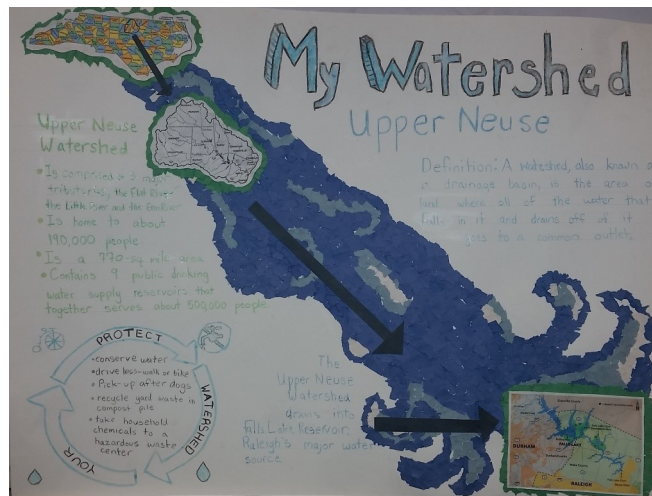 My Watershed
Upper Neuse
Upper Neuse
Watershed
• Is comprised of 3 major
tributaries, the Flat River
the Little River and the Eno River
• Is home to about
190,000 people
• Is a 770-sq mile area
• Contains 9 public drinking
water supply reservoirs that
together serves about 500,000 people
Definition: A watershed, also known a
drainage basin, is the area o
land where all of the water that
falls in it and drains off of it
goes to a common outlet.
PROTECT
YOUR
WATERSHED
-conserve water
•drive less-walk or bike
• Pick-up after dogs
• recycle yard waste in
compost pile
•take household
chemicals to a
hazardous waste
center
The
Upper Neuse
Watershed
drains into
Falls Lake Reservoir;
Raleigh's major water
source.
DURHAM
RALEIGH